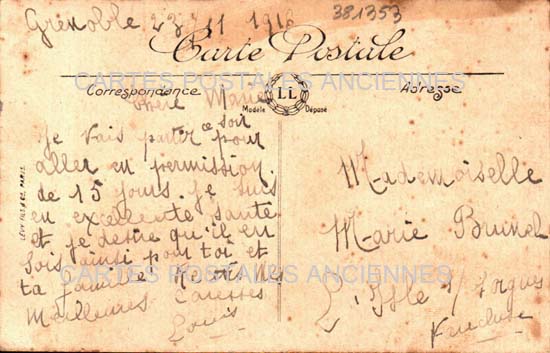 Grenoble 23/11 1916
381353
Carte Postale
CARTES POSTALES ANCIENNES
Correspondance
LL
Modèle Déposé
Adresse
Chère Marie
Je vais partir ce soir pour
aller en permission
de 15 jours. Je suis
en excellente santé
et je désire qu'il en
sois ainsi pour toi et
ta famille
Meilleures Caresses
Louis
Mademoiselle
Marie Brunel
L'Isle s/ Sorgues
Vaucluse
CARTES POSTALES ANCIENNES
LÉVY FILS & Cie PARIS